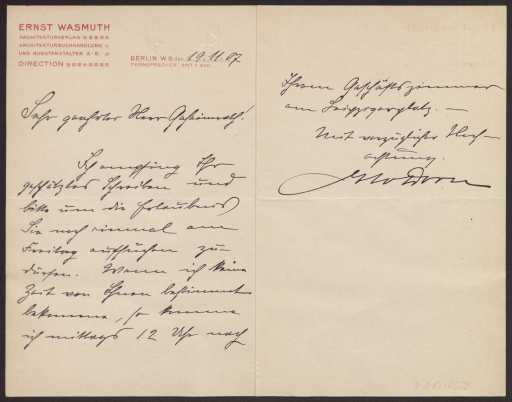 ERNST WASMUTH
ARCHITEKTURVERLAG
ARCHITEKTURBUCHHANDLUNG U.
UND KUNSTANSTALTEN A.-G.
DIRECTION
BERLIN W.8 den 19.11.07
FERNSPRECHER: AMT I
Sehr geehrter Herr Geheimrath!
Ich empfing Ihr
geschätztes Schreiben und
bitte um die Erlaubnis
Sie noch einmal am
Freitag aufsuchen zu
dürfen. Wenn ich keine
Zeit von Ihnen bestimmt
bekomme, so komme
ich mittags 12 Uhr nach
Ihrem Geschäftszimmer
am Leipzigerplatz. —
Mit vorzüglicher Hoch-
achtung.